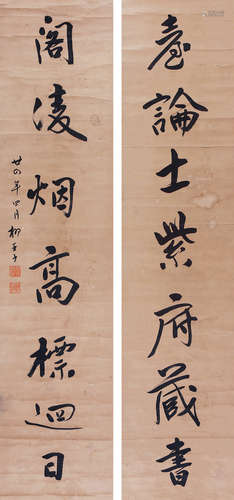 臺論士紫府藏書
閣凌烟高標迴日
廿四年四月柳